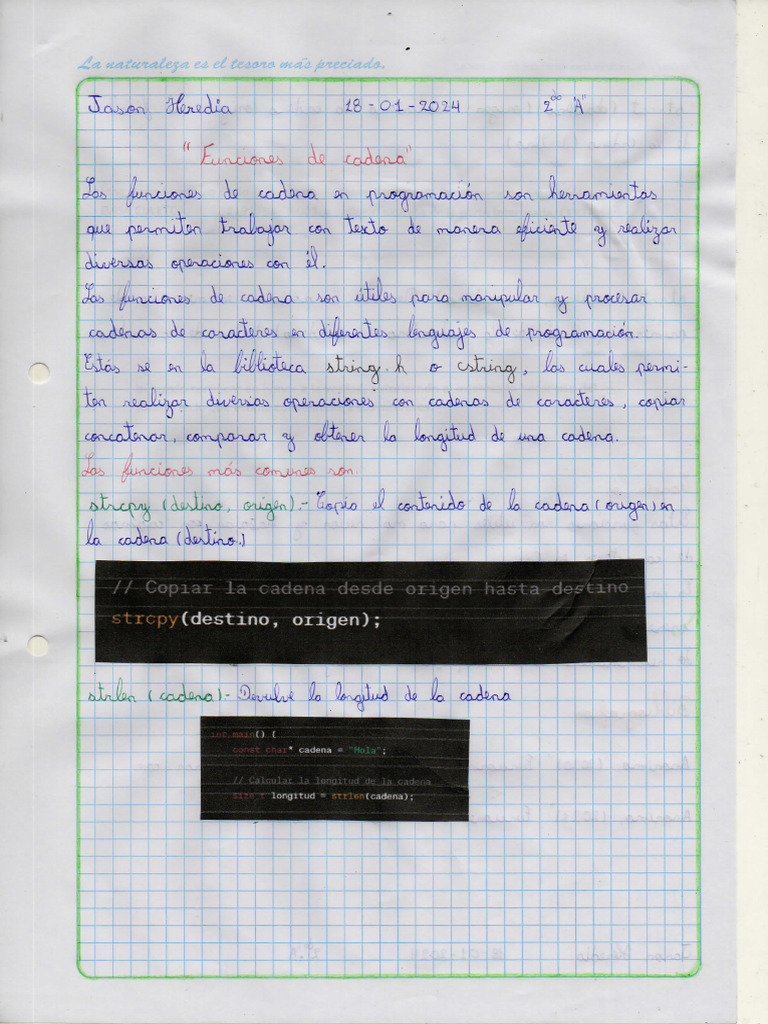 La naturaleza es el tesoro más preciado.
Jason Heredia 18-01-2024 2do "A"
"Funciones de cadena"
Las funciones de cadena en programación son herramientas
que permiten trabajar con texto de manera eficiente y realizar
diversas operaciones con él.
Las funciones de cadena son útiles para manipular y procesar
cadenas de caracteres en diferentes lenguajes de programación.
Estás se en la biblioteca string.h o cstring, las cuales permi-
ten realizar diversas operaciones con cadenas de caracteres, copiar
concatenar, comparar y obtener la longitud de una cadena.
Las funciones más comunes son.
strcpy (destino, origen).- Copia el contenido de la cadena (origen) en
la cadena (destino.)
// Copiar la cadena desde origen hasta destino
strcpy(destino, origen);
strlen (cadena).- Devulve la longitud de la cadena
int main() {
const char* cadena = "Hola";
// Calcular la longitud de la cadena
size_t longitud = strlen(cadena);